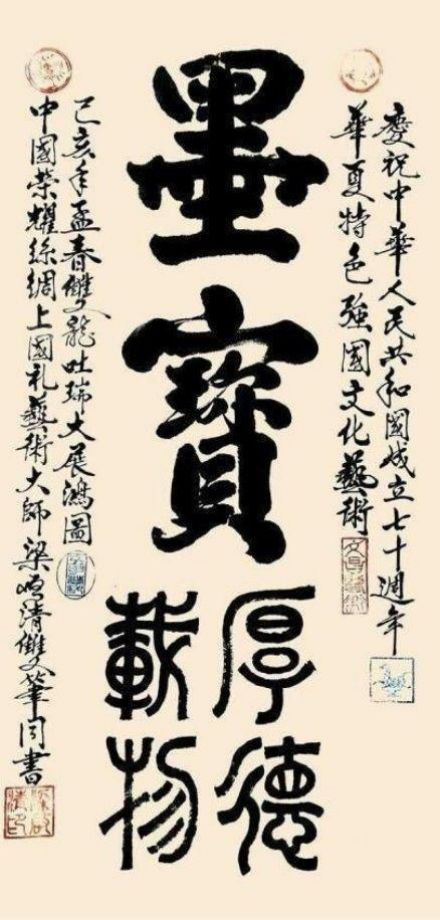 慶祝中華人民共和國成立七十週年
華夏特色強國文化藝術
墨寶
厚德
載物
己亥年孟春雙龍吐瑞大展鴻圖
中國榮耀絲綢上國礼藝術大師梁
清雙筆同書